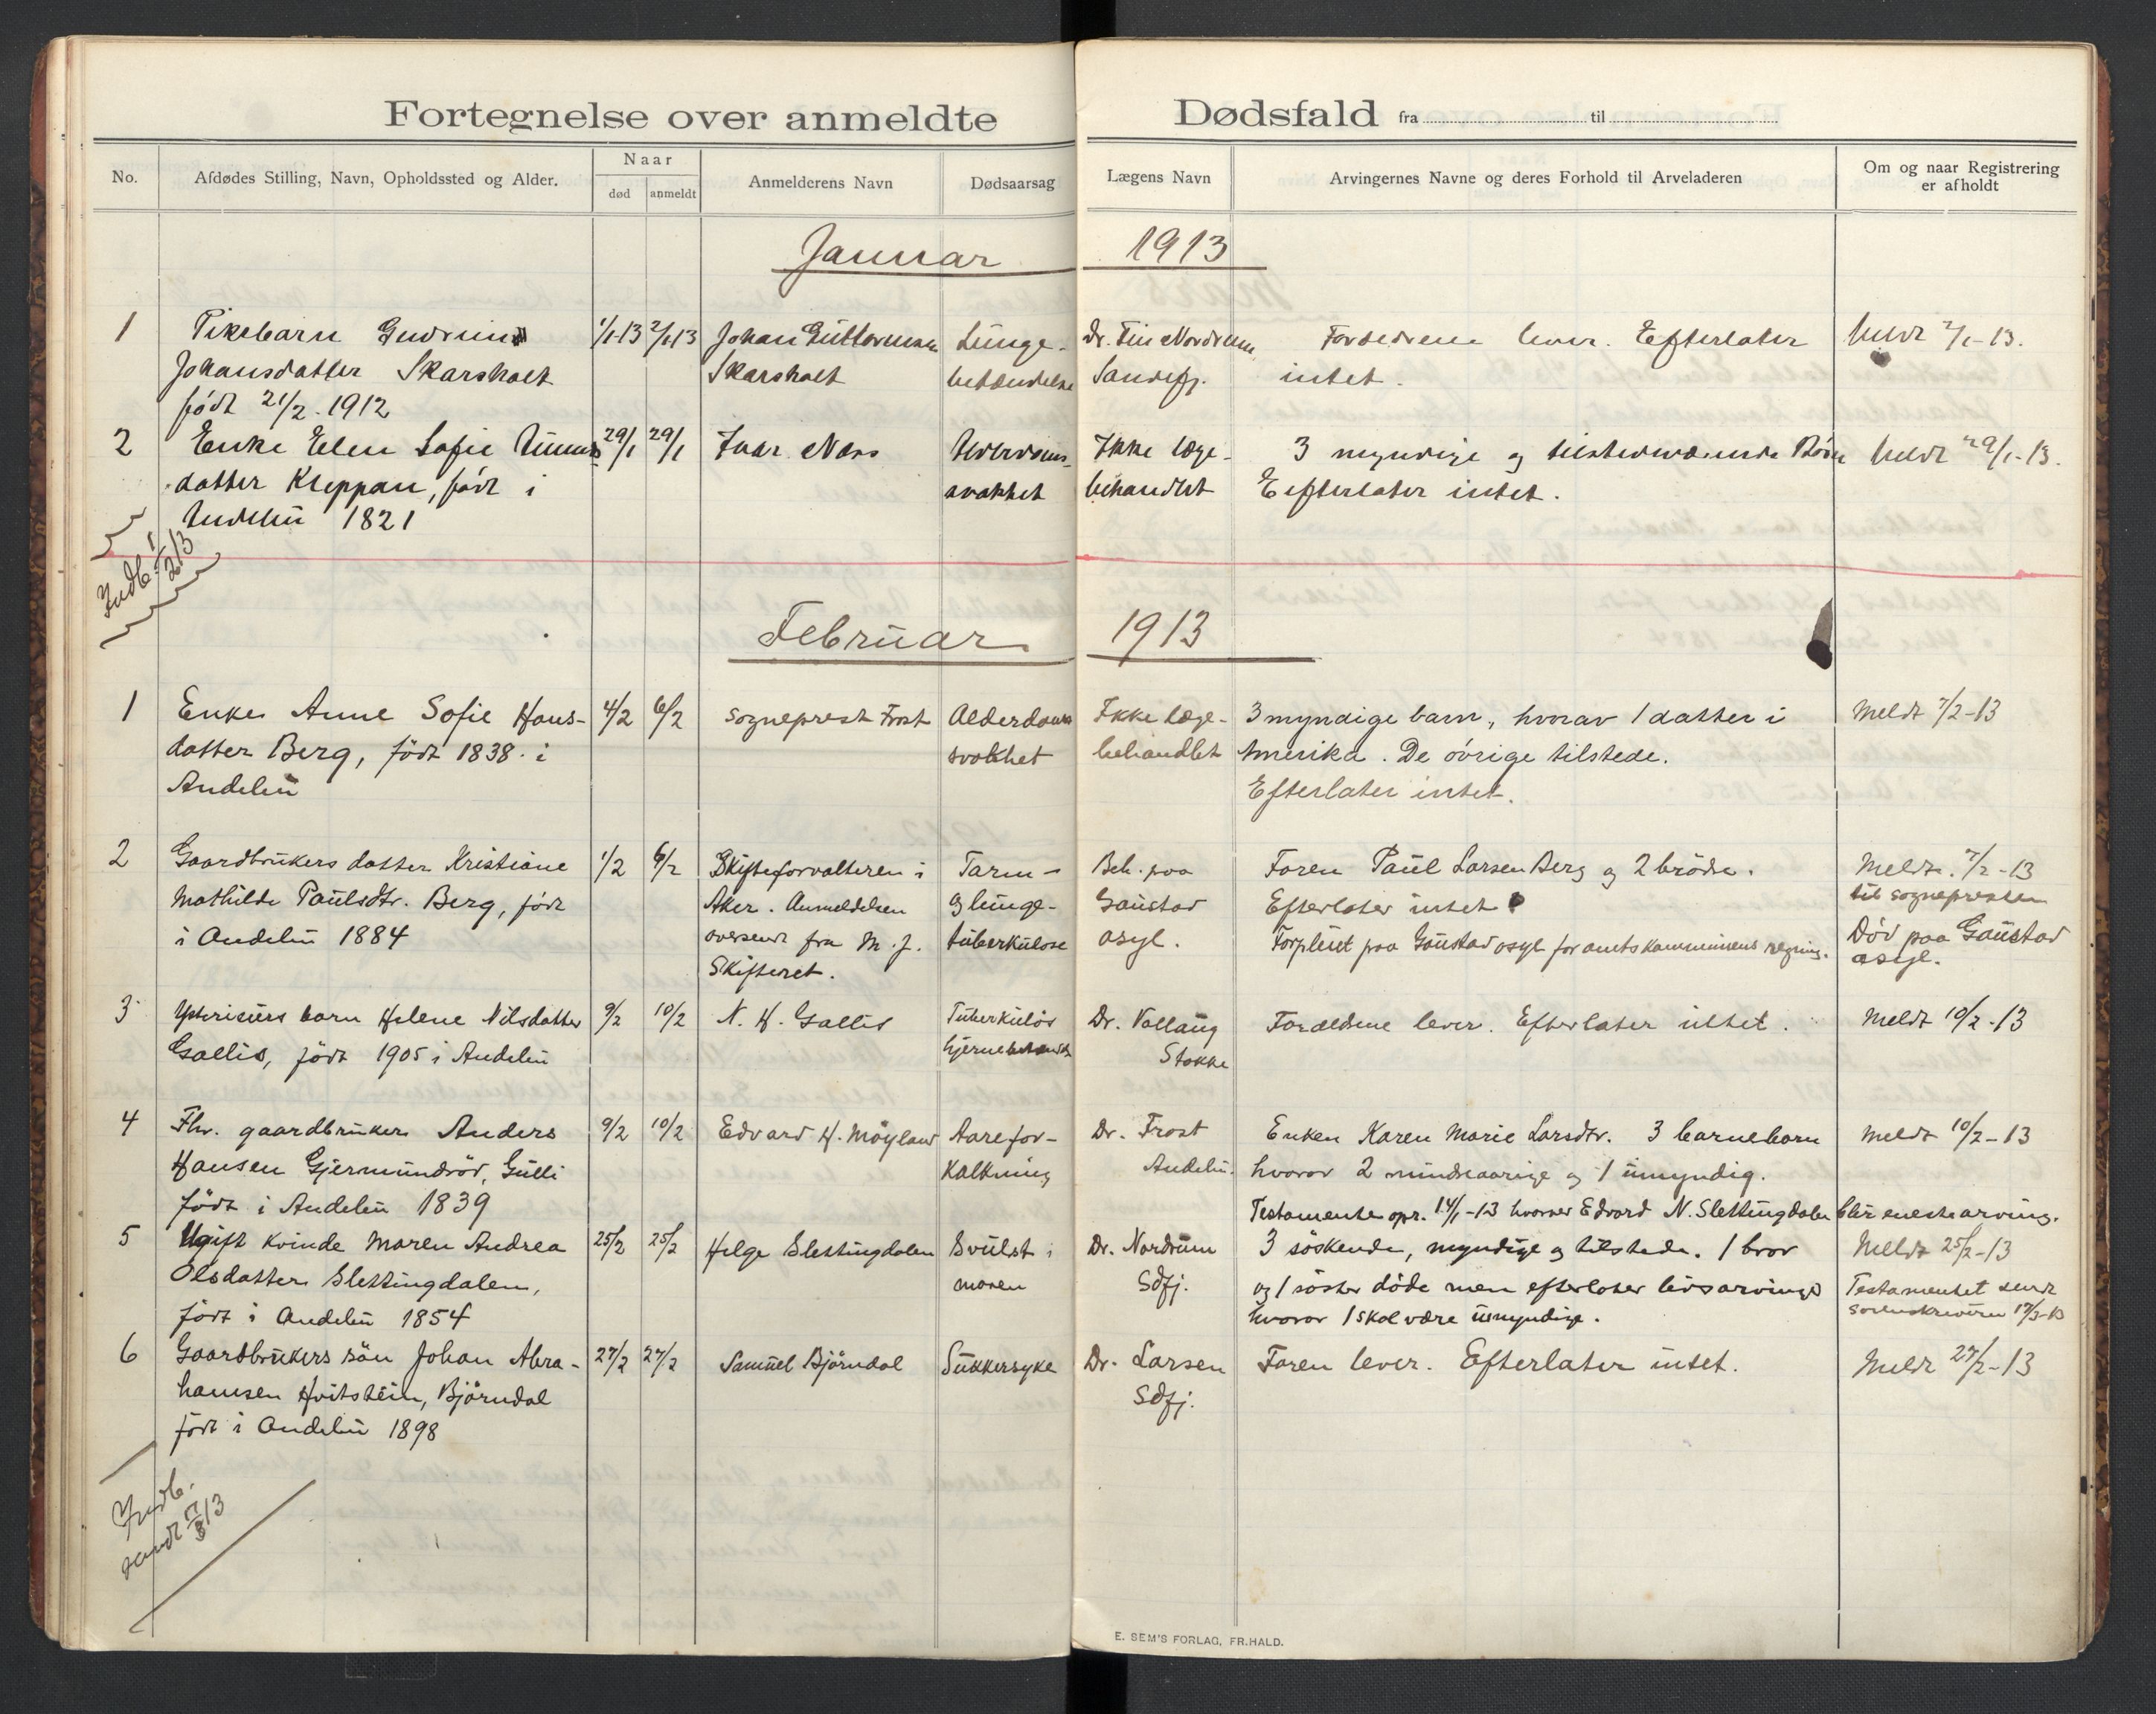 Fortegnelse over anmeldte Dødsfald fra til
No.
Afdødes Stilling, Navn, Opholdssted og Alder.
Naar
død
anmeldt
Anmelderens Navn
Dødsaarsag
Lægens Navn
Arvingernes Navne og deres Forhold til Arveladeren
Om og naar Registrering
er afholdt
Januar 1913
1
Pikebarn Gudrun
Johansdatter Skarsholt
född 21/2. 1912
1/1-13
2/1 13
Johan Guttormsen
Skarsholt
Lunge-
betændelse
Dr. Finn Nordrum
Sandefj.
Forældrene lever. Efterlater
intet.
Meldt 2/1-13.
2
Enke Elen Sofie
datter Kleppan, född i
Andebu 1821
29/1
29/1
Ivar Næss
Alderdoms-
svakhet
Ikke læge-
behandlet
3 myndige og tilstedeværende Börn
Eefterlater intet.
Meldt 29/1-13.
Indb. 1/2 13
Februar 1913
1
Enke Anne Sofie Hans-
datter Berg, född 1838 i
Andebu
4/2
6/2
Sogneprest Frost
Alderdoms
svakhet
Ikke læge-
behandlet
3 myndige barn, hvorav 1 datter i
Amerika. De övrige tilstede.
Efterlater intet.
Meldt 7/2-13
2
Gaardbrukers datter Kristiane
Mathilde Paulsdtr. Berg, född
i Andebu 1884
1/2
6/2
Skifteforvalteren i
Aker. Anmeldelsen
oversendt fra M. J.
Skifteret.
Tarm-
og lunge-
tuberkulose
Beh. paa
Gaustad
asyl.
Faren Paul Larsen Berg og 2 brödre.
Efterlater intet
Forpleiet paa Gaustad asyl for amtskommunens regning.
Meldt. 7/2-13
til sognepresten
Död paa Gaustad
asyl.
3
barn Helene Nilsdatter
Gallis, född 1905 i Andebu
9/2
10/2
N. H. Gallis
Tuberkulös
hjernebetændelse
Dr. Vollaug
Stokke
Forældrene lever. Efterlater intet.
Meldt 10/2-13
4
Fhv. gaardbruker Anders
Hansen Gjermundröd, Gulli
född i Andebu 1839
9/2
10/2
Edvard H. Möyland
Aarefor-
kalkning
Dr. Frost
Andebu.
Enken Karen Marie Larsdtr. 3 barnebarn
hvorav 2 mindreaarige og 1 umyndig.
Meldt 10/2-13
Testamente opr. 14/1-13 hvorved Edvard N. Slettingdalen blir enestearving.
5
Ugift kvinde Maren Andrea
Olsdatter Slettingdalen,
född i Andebu 1854
25/2
25/2
Helge Slettingdalen
Svulst i
maven
Dr. Nordrum
Sdfj.
3 söskende, myndige og tilstede. 1 bror
og 1 söster döde men efterlater livsarvinger
hvorav 1 skal være umyndige.
Meldt 25/2-13
Testamentet sendt
sorenskriveren 17/3-13
6
Gaardbrukers sön Johan Abra-
hamsen Hvitstein, Björndal
född i Andebu 1898
27/2
27/2
Samuel Björndal
Sukkersyke
Dr. Larsen
Sdfj.
Faren lever. Efterlater intet.
Meldt 27/2-13
Indb.
sendt 17/3 13
E. SEM'S FORLAG, FR.HALD.